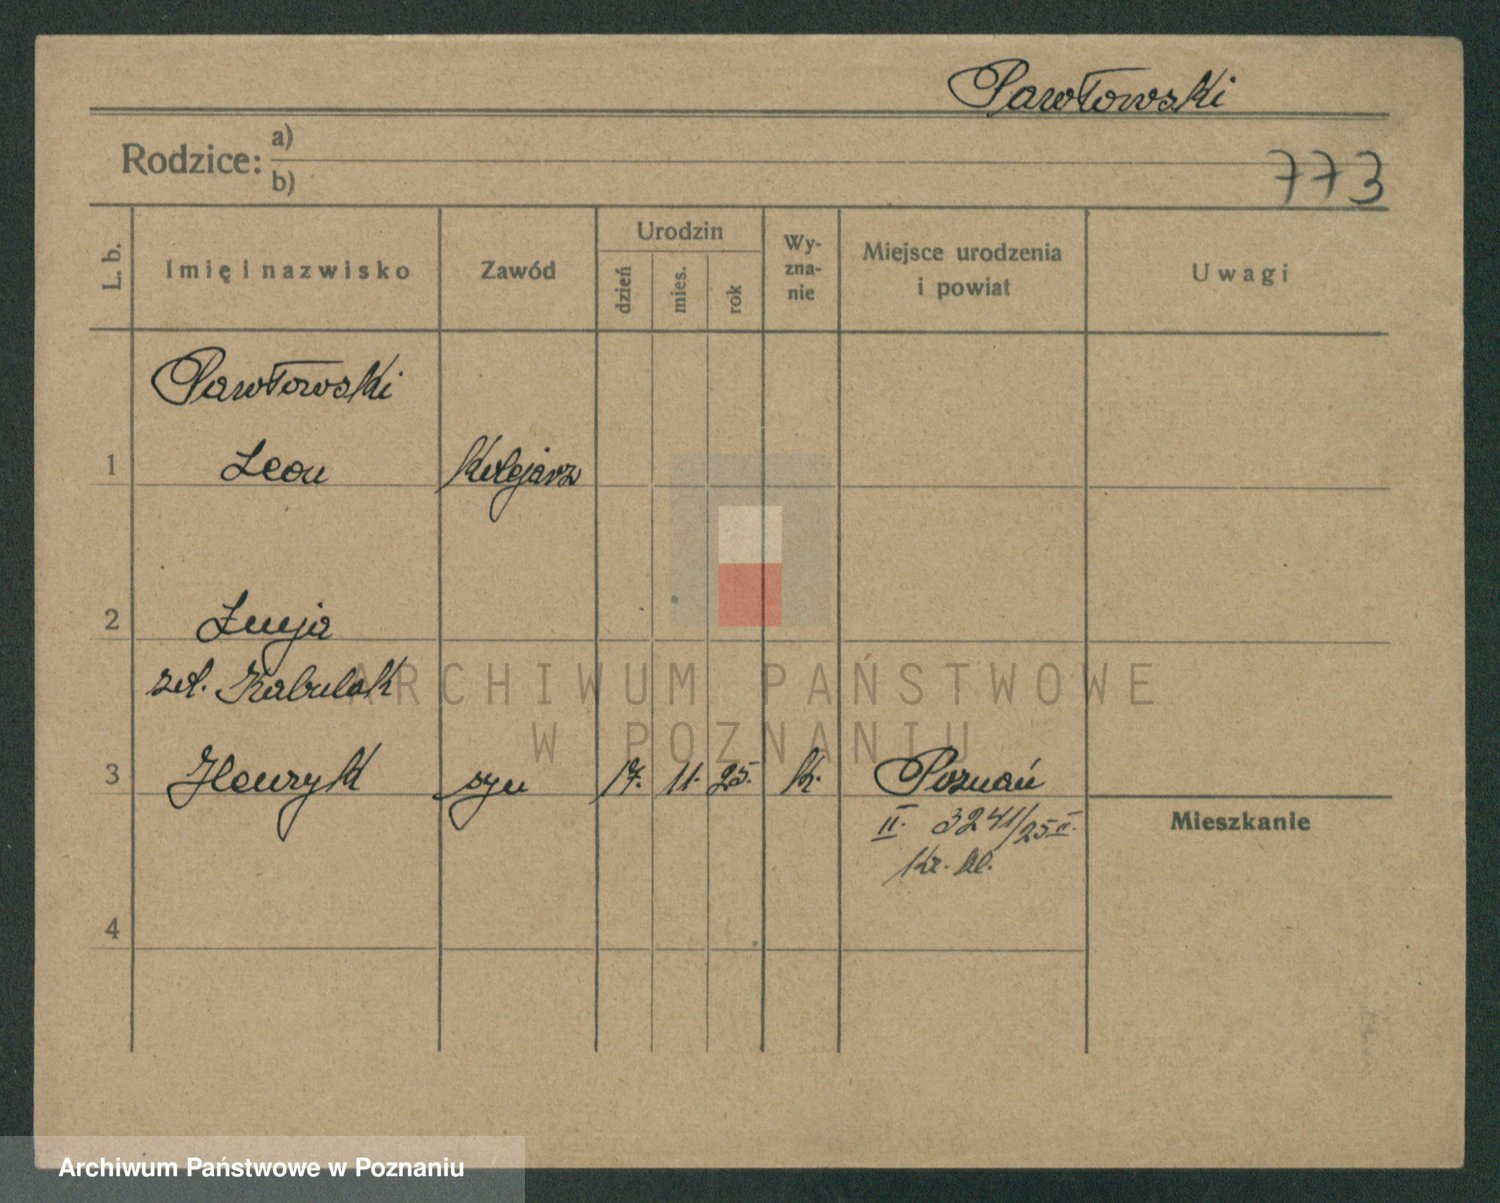 Pawłowski
Rodzice: a)
b)
773
L. b.
Imię i nazwisko
Zawód
Urodzin
dzień
mies.
rok
Wy-
zna-
nie
Miejsce urodzenia
i powiat
Uwagi
Pawłowski
1 Leon Kolejarz
2 Łucja
zd. Kabulak
3 Henryk syn 17. 11. 25. k. Poznań
II. 3241/25 II.
Mieszkanie
Kr. kl.
4
ARCHIWUM PAŃSTWOWE
W POZNANIU
Archiwum Państwowe w Poznaniu